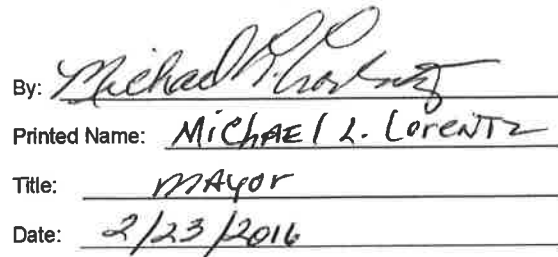 By: Michael L. Lorentz
Printed Name: MichAEl L. LoreNTz
Title: MAyor
Date: 2/23/2016